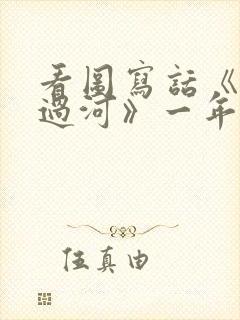 看图寫話《
過河》一年
伍真由